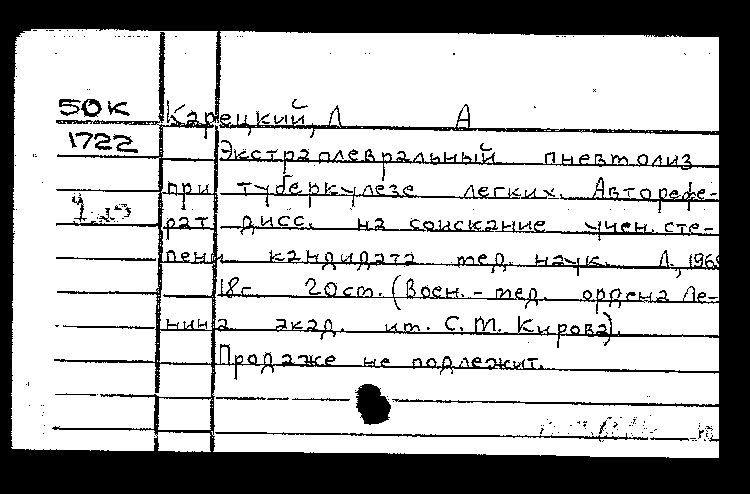 50К
Карецкий, Л А
1722
Экстраплевральный пневмолиз
при туберкулезе легких. Авторефе-
рат дисс. на соискание учен. сте-
пени кандидата мед. наук. Л., 196
18с. 20см. (Воен.-мед. ордена Ле-
нина акад. им. С. М. Кирова).
Продаже не подлежит.